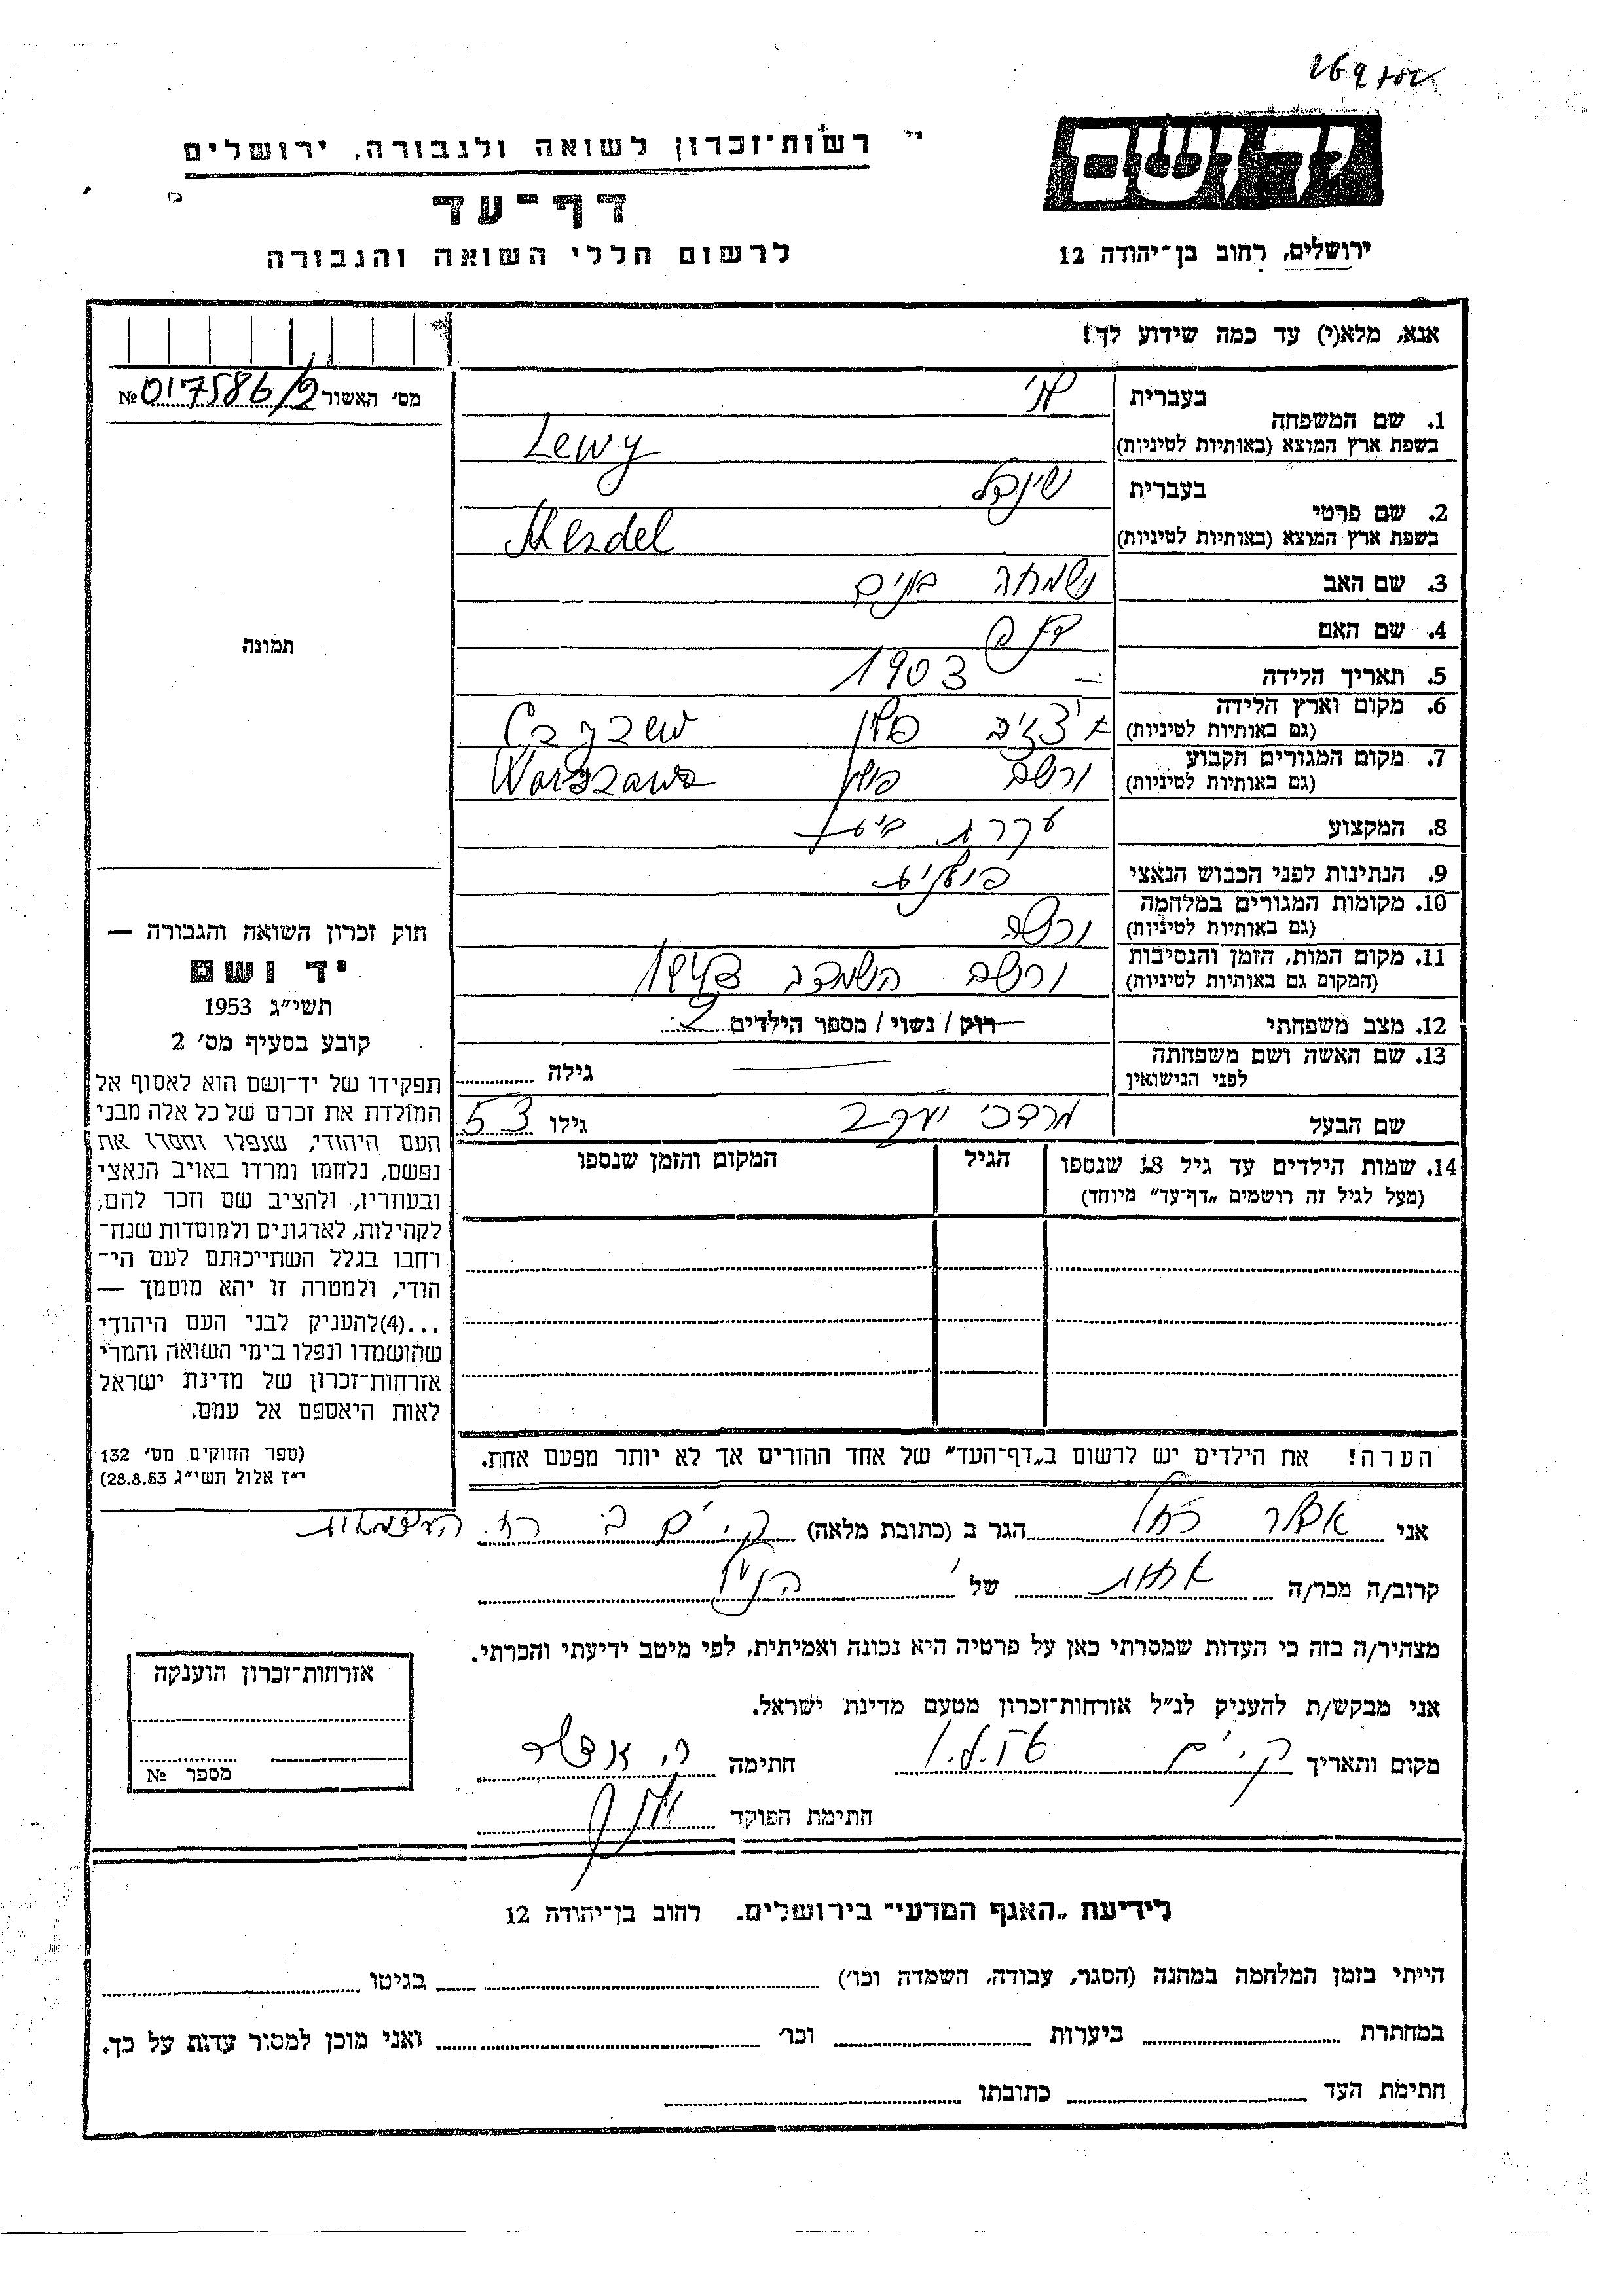 יד ושם
רשות־זכרון לשואה ולגבורה, ירושלים
דף־עד
לרשום חללי השואה והגבורה
ירושלים, רחוב בן־יהודה 12
אנא, מלא(י) עד כמה שידוע לך!
מס׳ האשור № 017586/2
1. שם המשפחה
בעברית לוי
בשפת ארץ המוצא (באותיות לטיניות) Lewy
2. שם פרטי
בעברית שינדל
בשפת ארץ המוצא (באותיות לטיניות)
3. שם האב שמחה בונים
4. שם האם
5. תאריך הלידה — 1903
6. מקום וארץ הלידה
(גם באותיות לטיניות) פולין
7. מקום המגורים הקבוע
(גם באותיות לטיניות) ורשה פולין Warszawa
8. המקצוע עקרת בית
9. הנתינות לפני הכבוש הנאצי פולנית
10. מקומות המגורים במלחמה
(גם באותיות לטיניות) ורשה
11. מקום המות, הזמן והנסיבות
(המקום גם באותיות לטיניות) ורשה
12. מצב משפחתי רוק / נשוי / מספר הילדים 2
13. שם האשה ושם משפחתה
לפני הנישואין — גילה
שם הבעל מרדכי יעקב גילו 53
14. שמות הילדים עד גיל 18 שנספו
(מעל לגיל זה רושמים „דף־עד״ מיוחד)
הגיל
המקום והזמן שנספו
הערה! את הילדים יש לרשום ב„דף־העד״ של אחד ההורים אך לא יותר מפעם אחת.
תמונה
חוק זכרון השואה והגבורה —
יד ושם
תשי״ג 1953
קובע בסעיף מס׳ 2
תפקידו של יד־ושם הוא לאסוף אל
המולדת את זכרם של כל אלה מבני
העם היהודי, שנפלו ומסרו את
נפשם, נלחמו ומרדו באויב הנאצי
ובעוזריו, ולהציב שם וזכר להם,
לקהילות, לארגונים ולמוסדות שנח־
רחבו בגלל השתייכותם לעם הי־
הודי, ולמטרה זו יהא מוסמך —
...(4)להעניק לבני העם היהודי
שהושמדו ונפלו בימי השואה והמרי
אזרחות־זכרון של מדינת ישראל
לאות היאספם אל עמם.
(ספר החוקים מס׳ 132
י״ז אלול תשי״ג 28.8.53)
אני רחל הגר ב (כתובת מלאה) ק. ים רח. העצמאות
קרוב/ה מכר/ה אחות של הנ״ל
מצהיר/ה בזה כי העדות שמסרתי כאן על פרטיה היא נכונה ואמיתית, לפי מיטב ידיעתי והכרתי.
אני מבקש/ת להעניק לנ״ל אזרחות־זכרון מטעם מדינת ישראל.
מקום ותאריך ק. ים חתימה
חתימת הפוקד
אזרחות־זכרון הוענקה
מספר №
לידיעת „האגף המדעי״ בירושלים. רחוב בן־יהודה 12
הייתי בזמן המלחמה במחנה (הסגר, עבודה, השמדה וכו׳) בגיטו
במחתרת ביערות וכו׳ ואני מוכן למסור עדות על כך.
חתימת העד כתובתו